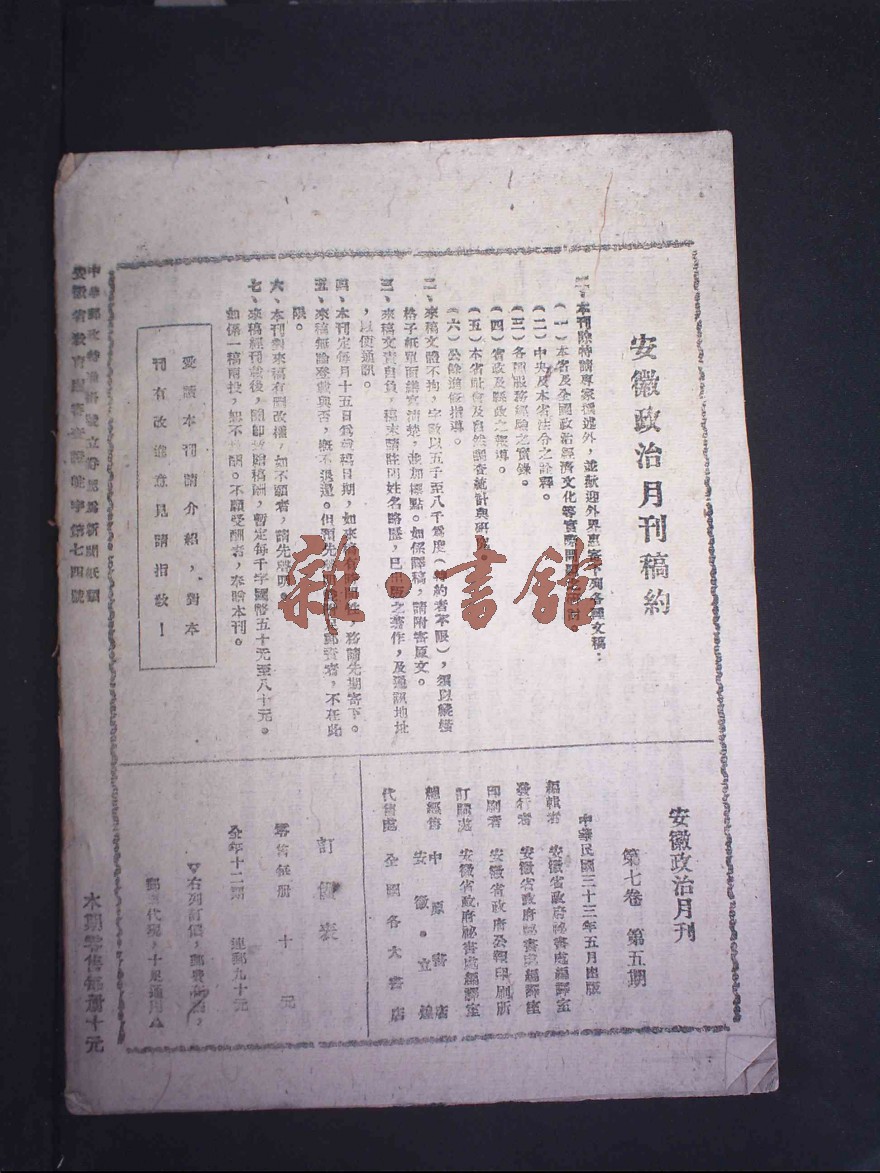 安徽政治月刊稿約
一、本刊除特請專家撰述外，並歡迎外界惠寄下列各種文稿：
（一）本省及全國政治經濟文化等實際問題之
（二）中央及本省法令之詮釋。
（三）各項服務經驗之實錄。
（四）省政及縣政之報導。
（五）本省社會及自然調查統計與研究。
（六）公餘進修指導。
二、來稿文體不拘，字數以五千至八千爲度（特約者不限），須以縱橫
格子紙單面繕寫清楚，並加標點。如係譯稿，請附寄原文。
三、來稿文責自負，稿末請註明姓名略歷，已出版之著作，及通訊地址
，以便通訊。
四、本刊定每月十五日爲截稿日期，如來稿有時間性，務請先期寄下。
五、來稿無論登載與否，概不退還。但預先聲明並附足郵資者，不在此
限。
六、本刊對來稿有刪改權，如不願者，請先聲明。
七、來稿經刊載後，即致贈稿酬，暫定每千字國幣五十元至八十元。
如係一稿兩投，概不致酬。不願受酬者，奉贈本刊。
愛護本刊請介紹，對本
刊有改進意見請指教！
安徽政治月刊
第七卷 第五期
中華民國三十三年五月出版
編輯者 安徽省政府祕書處編譯室
發行者 安徽省政府祕書處編譯室
印刷者 安徽省政府公報印刷所
訂購處 安徽省政府祕書處編譯室
總經售 中原書店
安徽•立煌
代售處 全國各大書店
訂價表
零售每册 十元
全年十二期 連郵九十元
▽右列訂價，郵費在內，
郵票代現，十足通用△
中華郵政特准掛號立券認爲新聞紙類
安徽省教育圖書審查證誌字第七四號
本期零售每册十元
雜·書館